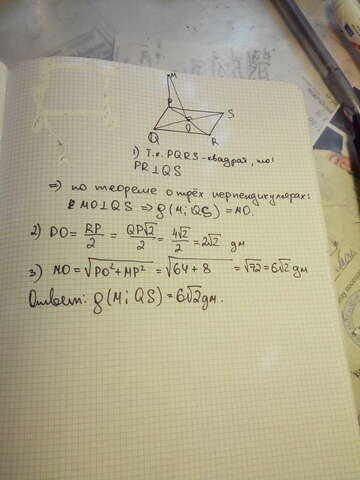 M
P
S
O
Q
R
1) Т.к. PQRS - квадрат, то:
PR ⊥ QS
=> по теореме о трёх перпендикулярах:
MO ⊥ QS => ρ(M; QS) = MO.
2) PO = RP/2 = QP√2/2 = 4√2/2 = 2√2 дм
3) MO = √PO² + MP² = √64 + 8 = √72 = 6√2 дм
Ответ: ρ(M; QS) = 6√2 дм.